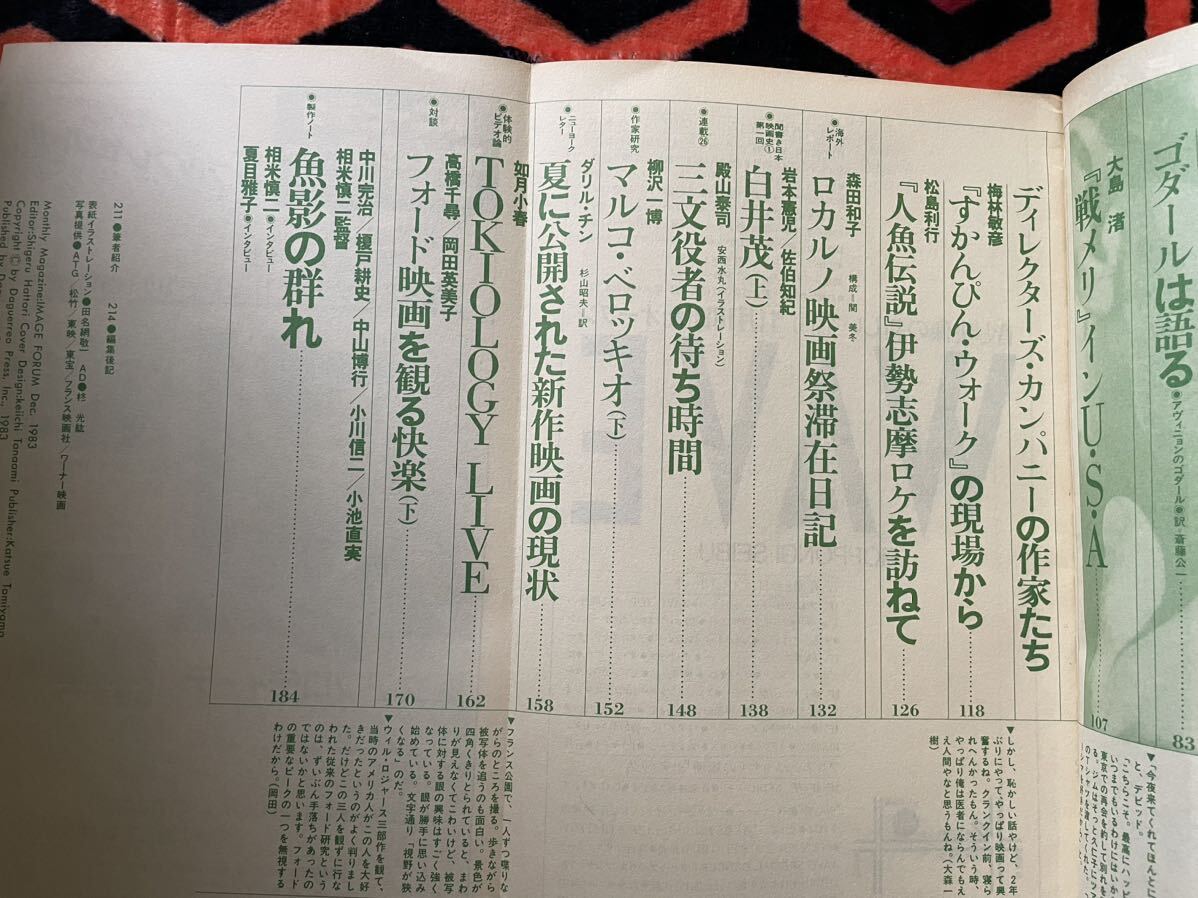 ゴダールは語る
●アヴィニョンのゴダール●訳=斎藤公一
83
大島 渚
『戦メリ』インU・S・A
107
ディレクターズ・カンパニーの作家たち
梅林敏彦
『すかんぴん・ウォーク』の現場から
118
松島利行
『人魚伝説』伊勢志摩ロケを訪ねて
126
●海外レポート
森田和子
構成=関 美冬
ロカルノ映画祭滞在日記
132
●聞書き日本映画史①第一回
岩本憲児/佐伯知紀
白井茂(上)
138
●連載㉖
殿山泰司
安西水丸(イラストレーション)
三文役者の待ち時間
148
●作家研究
柳沢一博
マルコ・ベロッキオ(下)
152
●ニューヨークレター
ダリル・チン
杉山昭夫=訳
夏に公開された新作映画の現状
158
●体験的ビデオ論
如月小春
TOKIOLOGY LIVE
162
●対談
高橋千尋/岡田英美子
フォード映画を観る快楽(下)
170
●製作ノート
中川完治/榎戸耕史/中山博行/小川信二/小池直実
相米慎二監督
魚影の群れ
184
相米慎二●インタビュー
夏目雅子●インタビュー
211●筆者紹介
214●編集後記
表紙イラストレーション●田名網敬一 AD●柊 光紘
写真提供●ATG/松竹/東映/東宝/フランス映画社/ワーナー映画
Monthly Magazine:IMAGE FORUM Dec. 1983
Editor:Shigeru Hattori Cover Design:keiichi Tanaami Publisher:Katsue Tomiyama
Copyright © by Daguerreo Press, Inc., 1983
Published by Dag
▼「今夜来てくれてほんとに
と、デビッド。
「こちらこそ。最高にハッピ
いつまでもいるわけにはいか
東京での再会を約して別れを
る。ジムはそっと久に子にファ
のTシャツを渡してくれた。
▼しかし、恥かしい話やけど、2年
ぶりにやって、やっぱり映画って興
奮するね。クランクイン前、寝ら
れへんかったもん。そういう時、
やっぱり俺は医者にならんでもえ
え人間やなと思うもんね。(大森一
樹)
▼フランス公園で、一人ずつ喋りな
がらのところを撮る。歩きながら
被写体を追うのも面白い。景色が
四角くきりとられていると、まわ
りが見えなくてこわいけど、被写
体に対する眼の興味はすごく強く
なっている。眼が勝手に思い込み
始めている。文字通り「視野が狭
くなる」のだ。
▼ウィル・ロジャース三部作を観て、
当時のアメリカ人がこの人を大好
きだったというのがよく判りまし
た。だけどこの三人を観ずに行な
われた従来のフォード研究という
のは、ずいぶん手落ちがあったの
ではないかと思います。フォード
の重要なピークの一つを無視する
わけだから。(岡田)